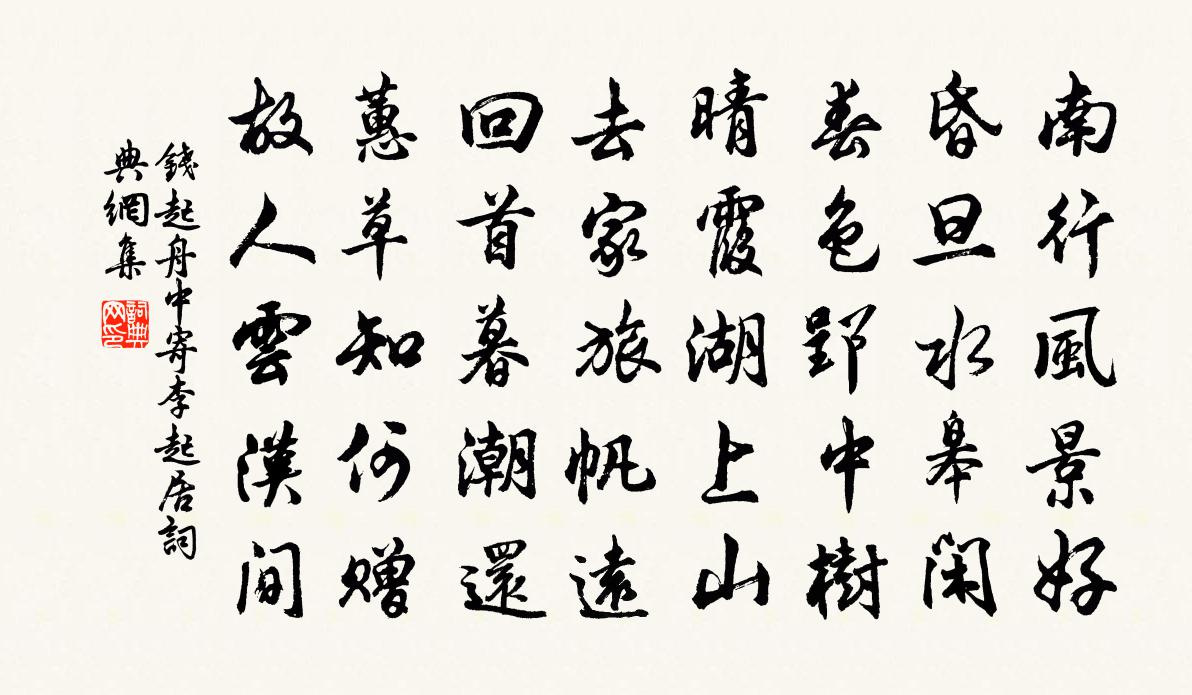 南行風景好
昏旦水皋閑
春色郢中樹
晴霞湖上山
去家旅帆遠
回首暮潮還
蕙草知何贈
故人雲漢間
錢起舟中寄李起居詞
典網集
詞典
网印